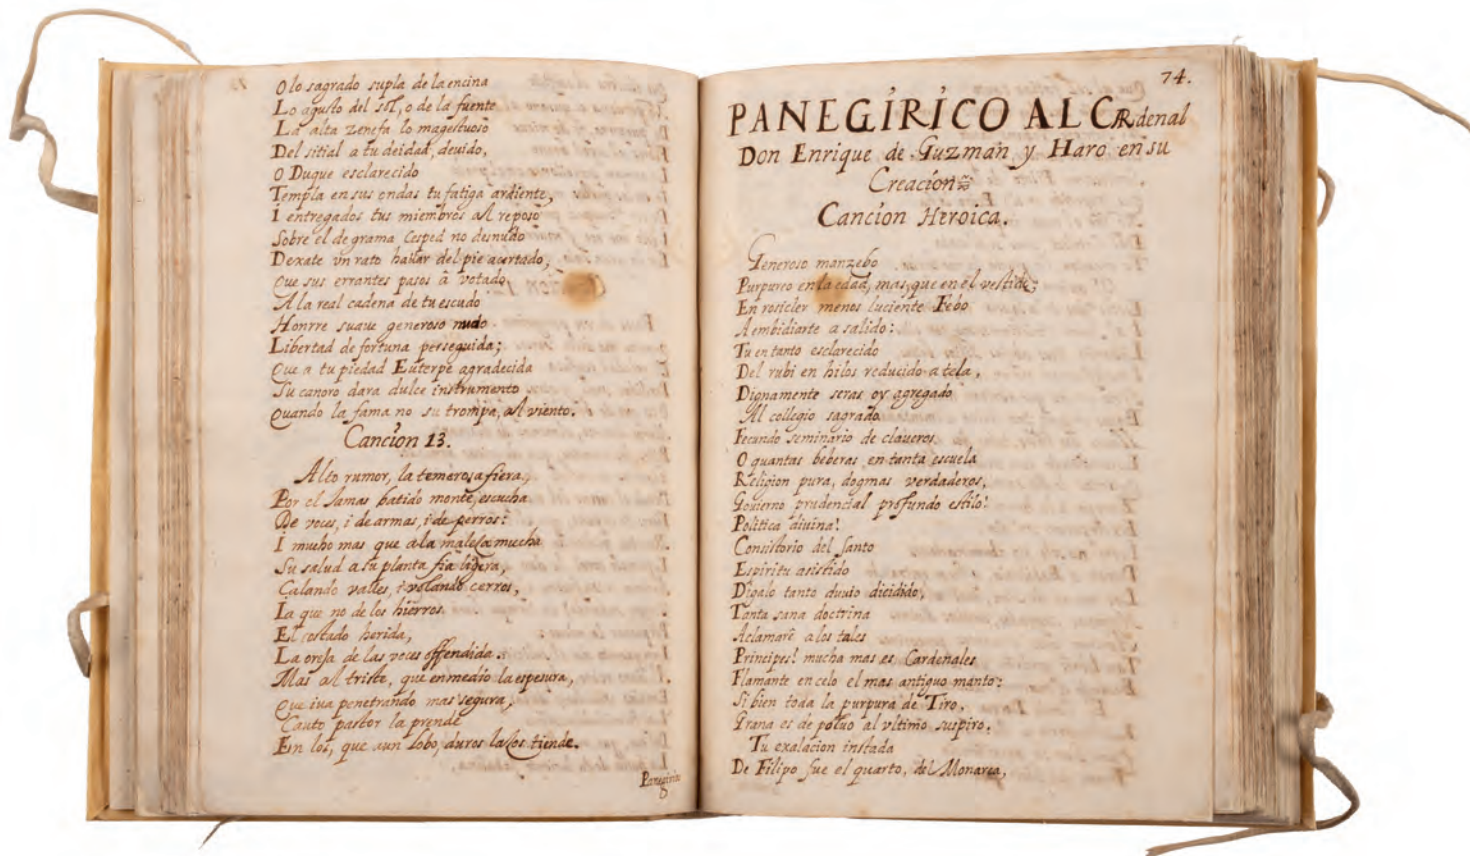 O lo sagrado supla de la encina
Lo agusto del sol, o de la fuente
La alta zenefa lo magestuoso
Del sitial a tu deidad, deuido,
O Duque esclarecido
Templa en sus ondas tu fatiga ardiente,
I entregados tus miembros al reposo
Sobre el de grama Cesped no desnudo
Dexate vn rato hallar del pie acertado,
Que sus errantes pasos â votado
A la real cadena de tu escudo
Honrre suaue generoso nudo
Libertad de fortuna perseguida;
Que a tu piedad Euterpe agradecida
Su canoro dara dulce instrumento
Quando la fama no su trompa, al viento.
Cancion 13.
Alto rumor, la temerosa fiera,
Por el Jamas batido monte, escucha
De voces, i de armas, i de perros:
I mucho mas que a la maleza mucha
Su salud a su planta fia ligera,
Calando valles, i volando cerros,
Ia que no de los hierros
El costado herida,
La oreja de las voces offendida.
Mas al triste, que enmedio la espesura,
Que iua penetrando mas segura,
Cauto pastor la prende
En los, que aun Lobo, duros lazos tiende.
Panegirico
74.
PANEGIRICO AL CARdenal
Don Enrique de Guzman y Haro en su
Creacion
Cancion Heroica.
Generoso manzebo
Purpureo en la edad, mas, que en el vestido;
En rosicler menos luciente Febo
A embidiarte a salido:
Tu en tanto esclarecido
Del rubi en hilos reducido a tela,
Dignamente seras oy agregado
Al collegio sagrado
Fecundo seminario de claueros.
O quantas beberas en tanta escuela
Religion pura, dogmas verdaderos,
Gouierno prudencial profundo estilo!
Politica diuina!
Consistorio del Santo
Espiritu asistido
Digalo tanto duuio dicidido,
Tanta sana doctrina
Aclamarè a los tales
Principes! mucha mas es Cardenales
Flamante en celo el mas antiguo manto:
Si bien toda la purpura de Tiro,
Grana es de poluo al vltimo suspiro.
Tu exalacion instada
De Filipo fue el quarto, del Monarca,